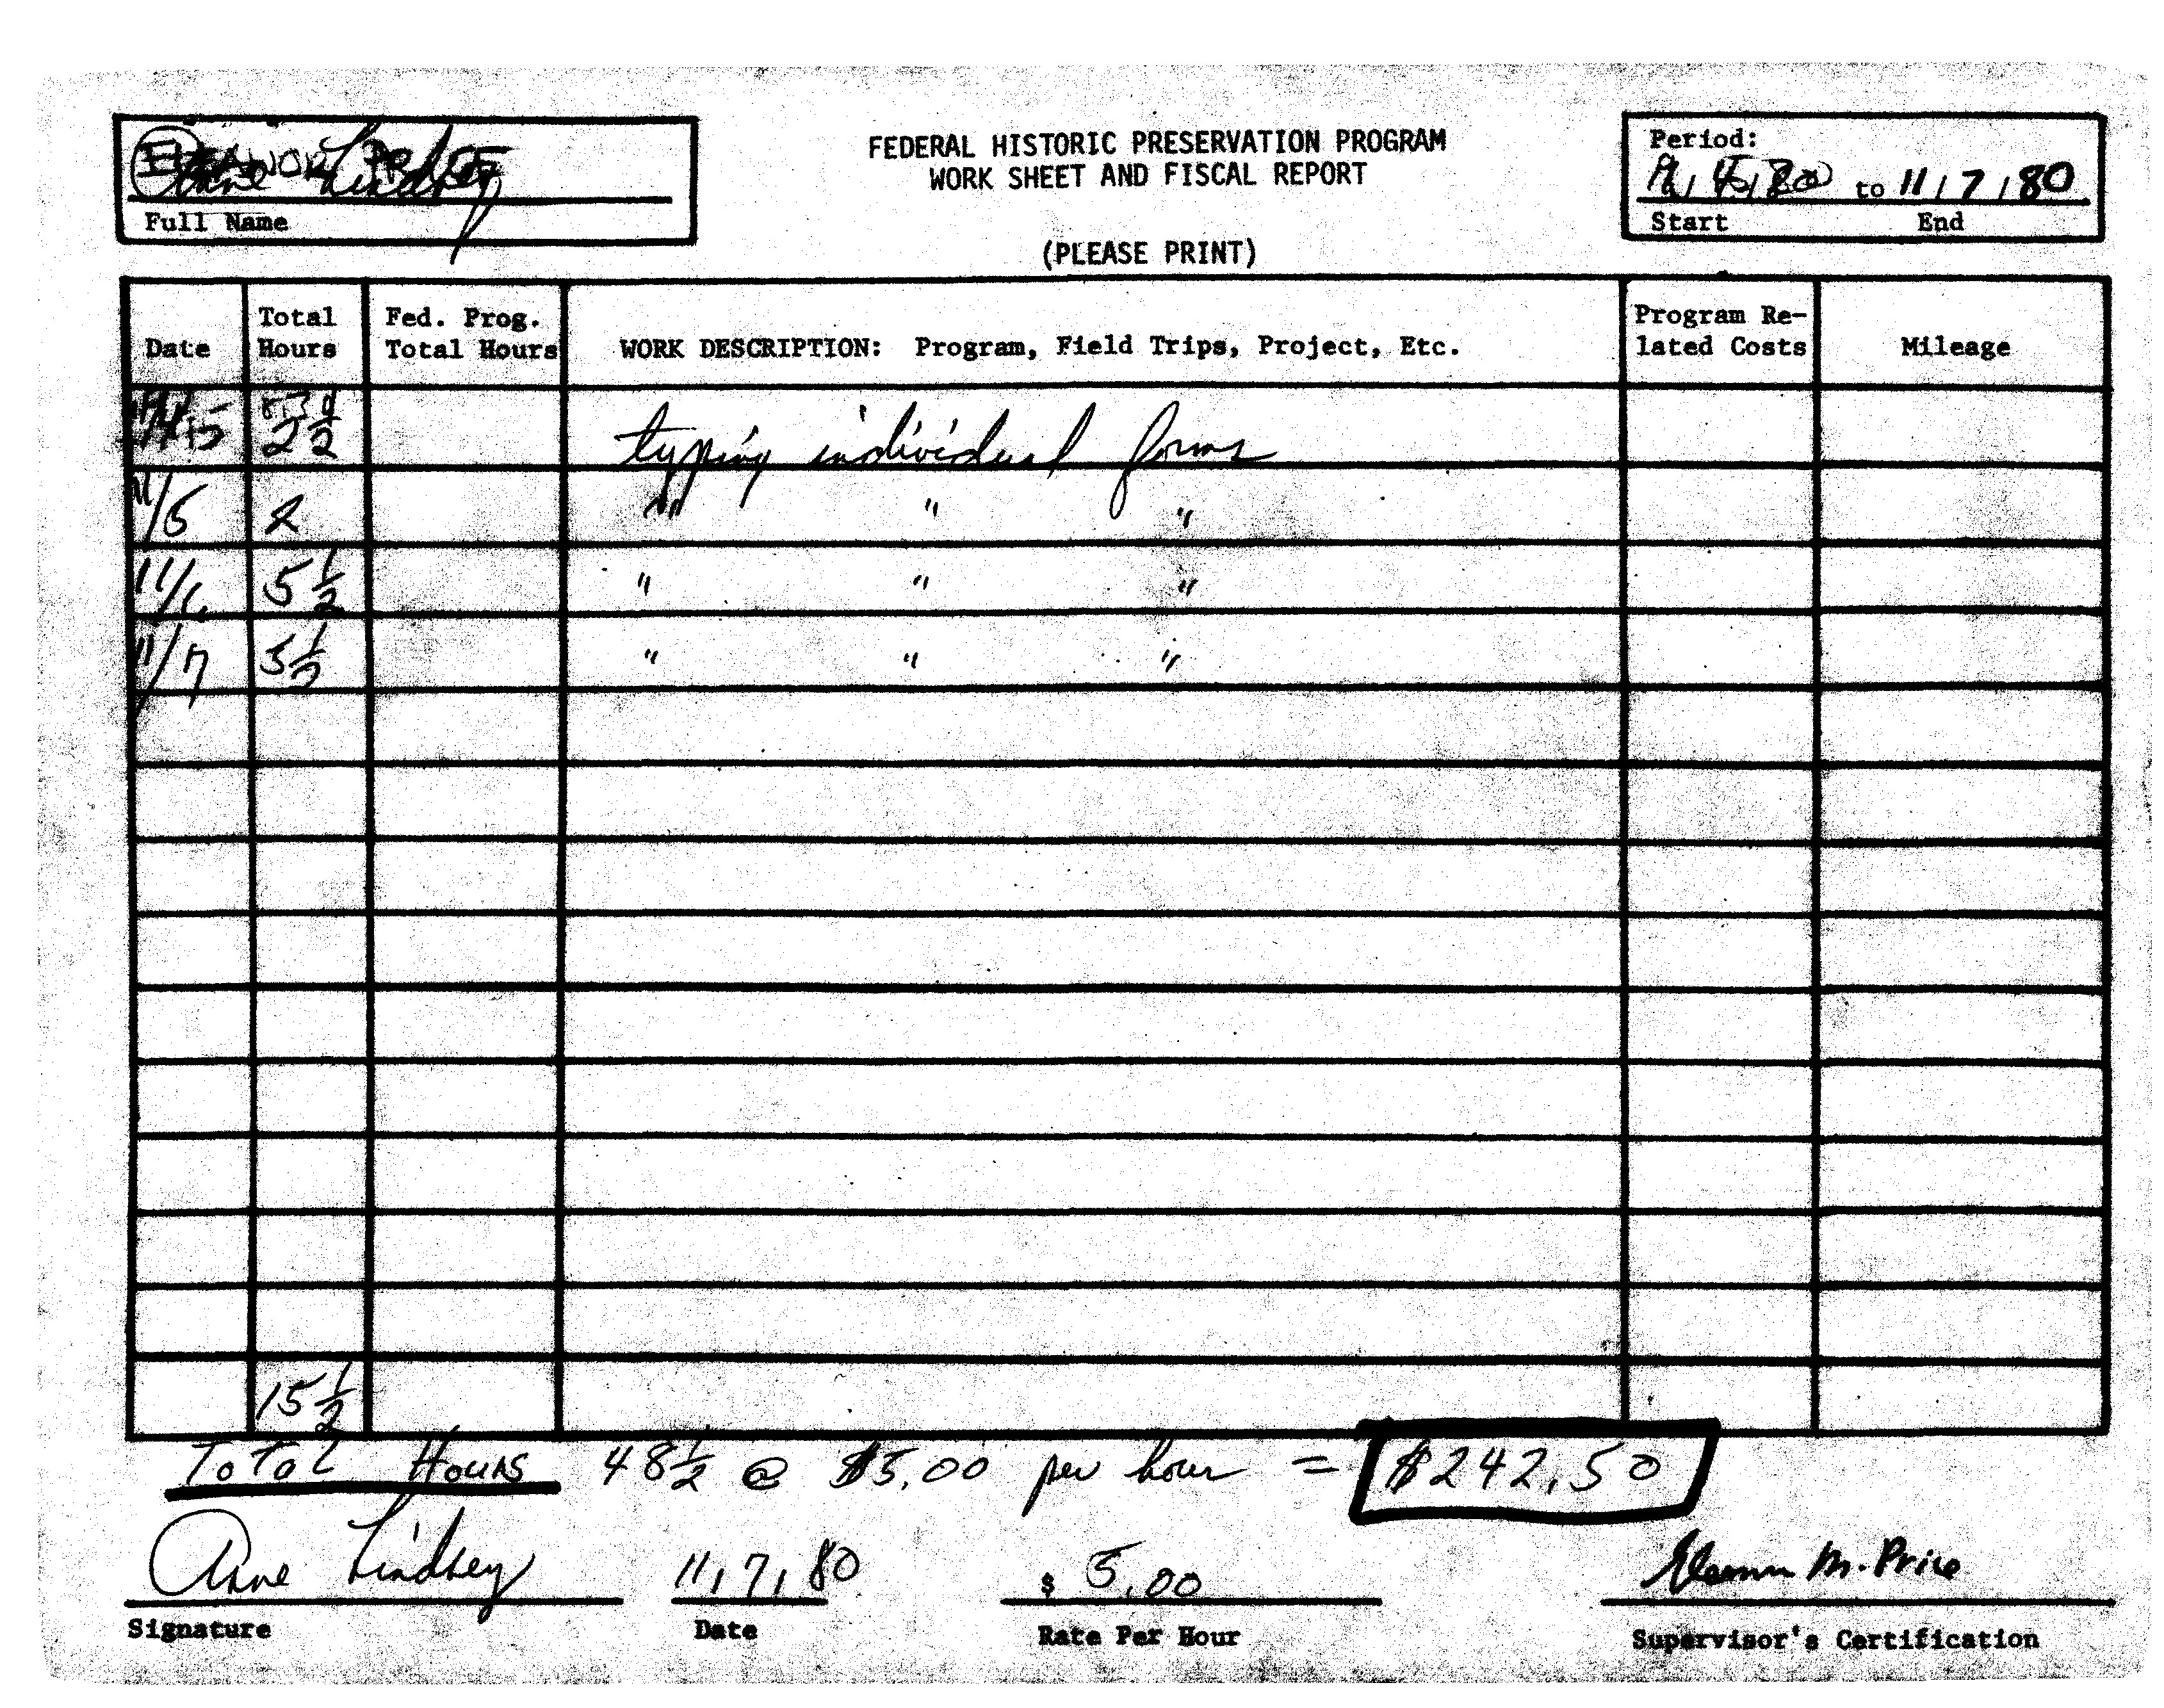 Anne Lindsey
Full Name
FEDERAL HISTORIC PRESERVATION PROGRAM
WORK SHEET AND FISCAL REPORT
(PLEASE PRINT)
Period:
to 11/7/80
Start End
Date Total Hours Fed. Prog. Total Hours WORK DESCRIPTION: Program, Field Trips, Project, Etc. Program Re-lated Costs Mileage
2 1/2 typing individual forms
11/5 2 " " "
11/6 5 1/2 " " "
11/7 5 1/2 " " "
15 1/2
Total Hours 48 1/2 @ $5.00 per hour = $242.50
Anne Lindsey 11/7/80 $ 5.00 Eleanor M. Price
Signature Date Rate Per Hour Supervisor's Certification